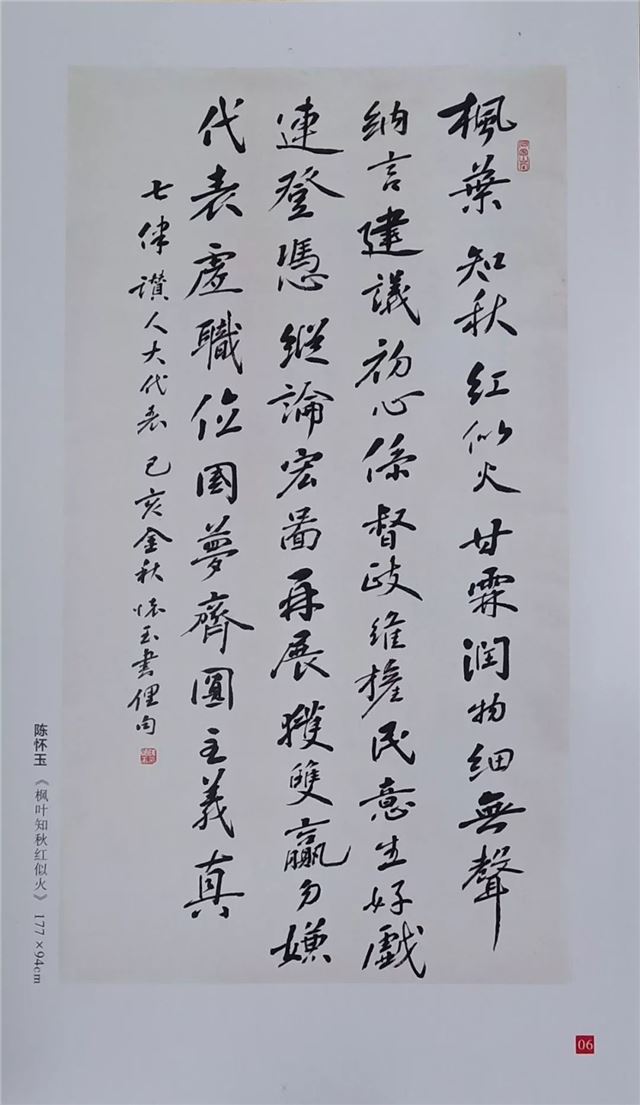 楓葉知秋红似火甘霖潤物细無聲
纳言建議初心係督政维權民意生好戲
連登憑縱論宏圖再展獲雙赢勿嫌
代表虚職位國夢齊圓主義真
七律讚人大代表己亥金秋懷玉書俚句
陈怀玉《枫叶知秋红似火》177×94cm
06